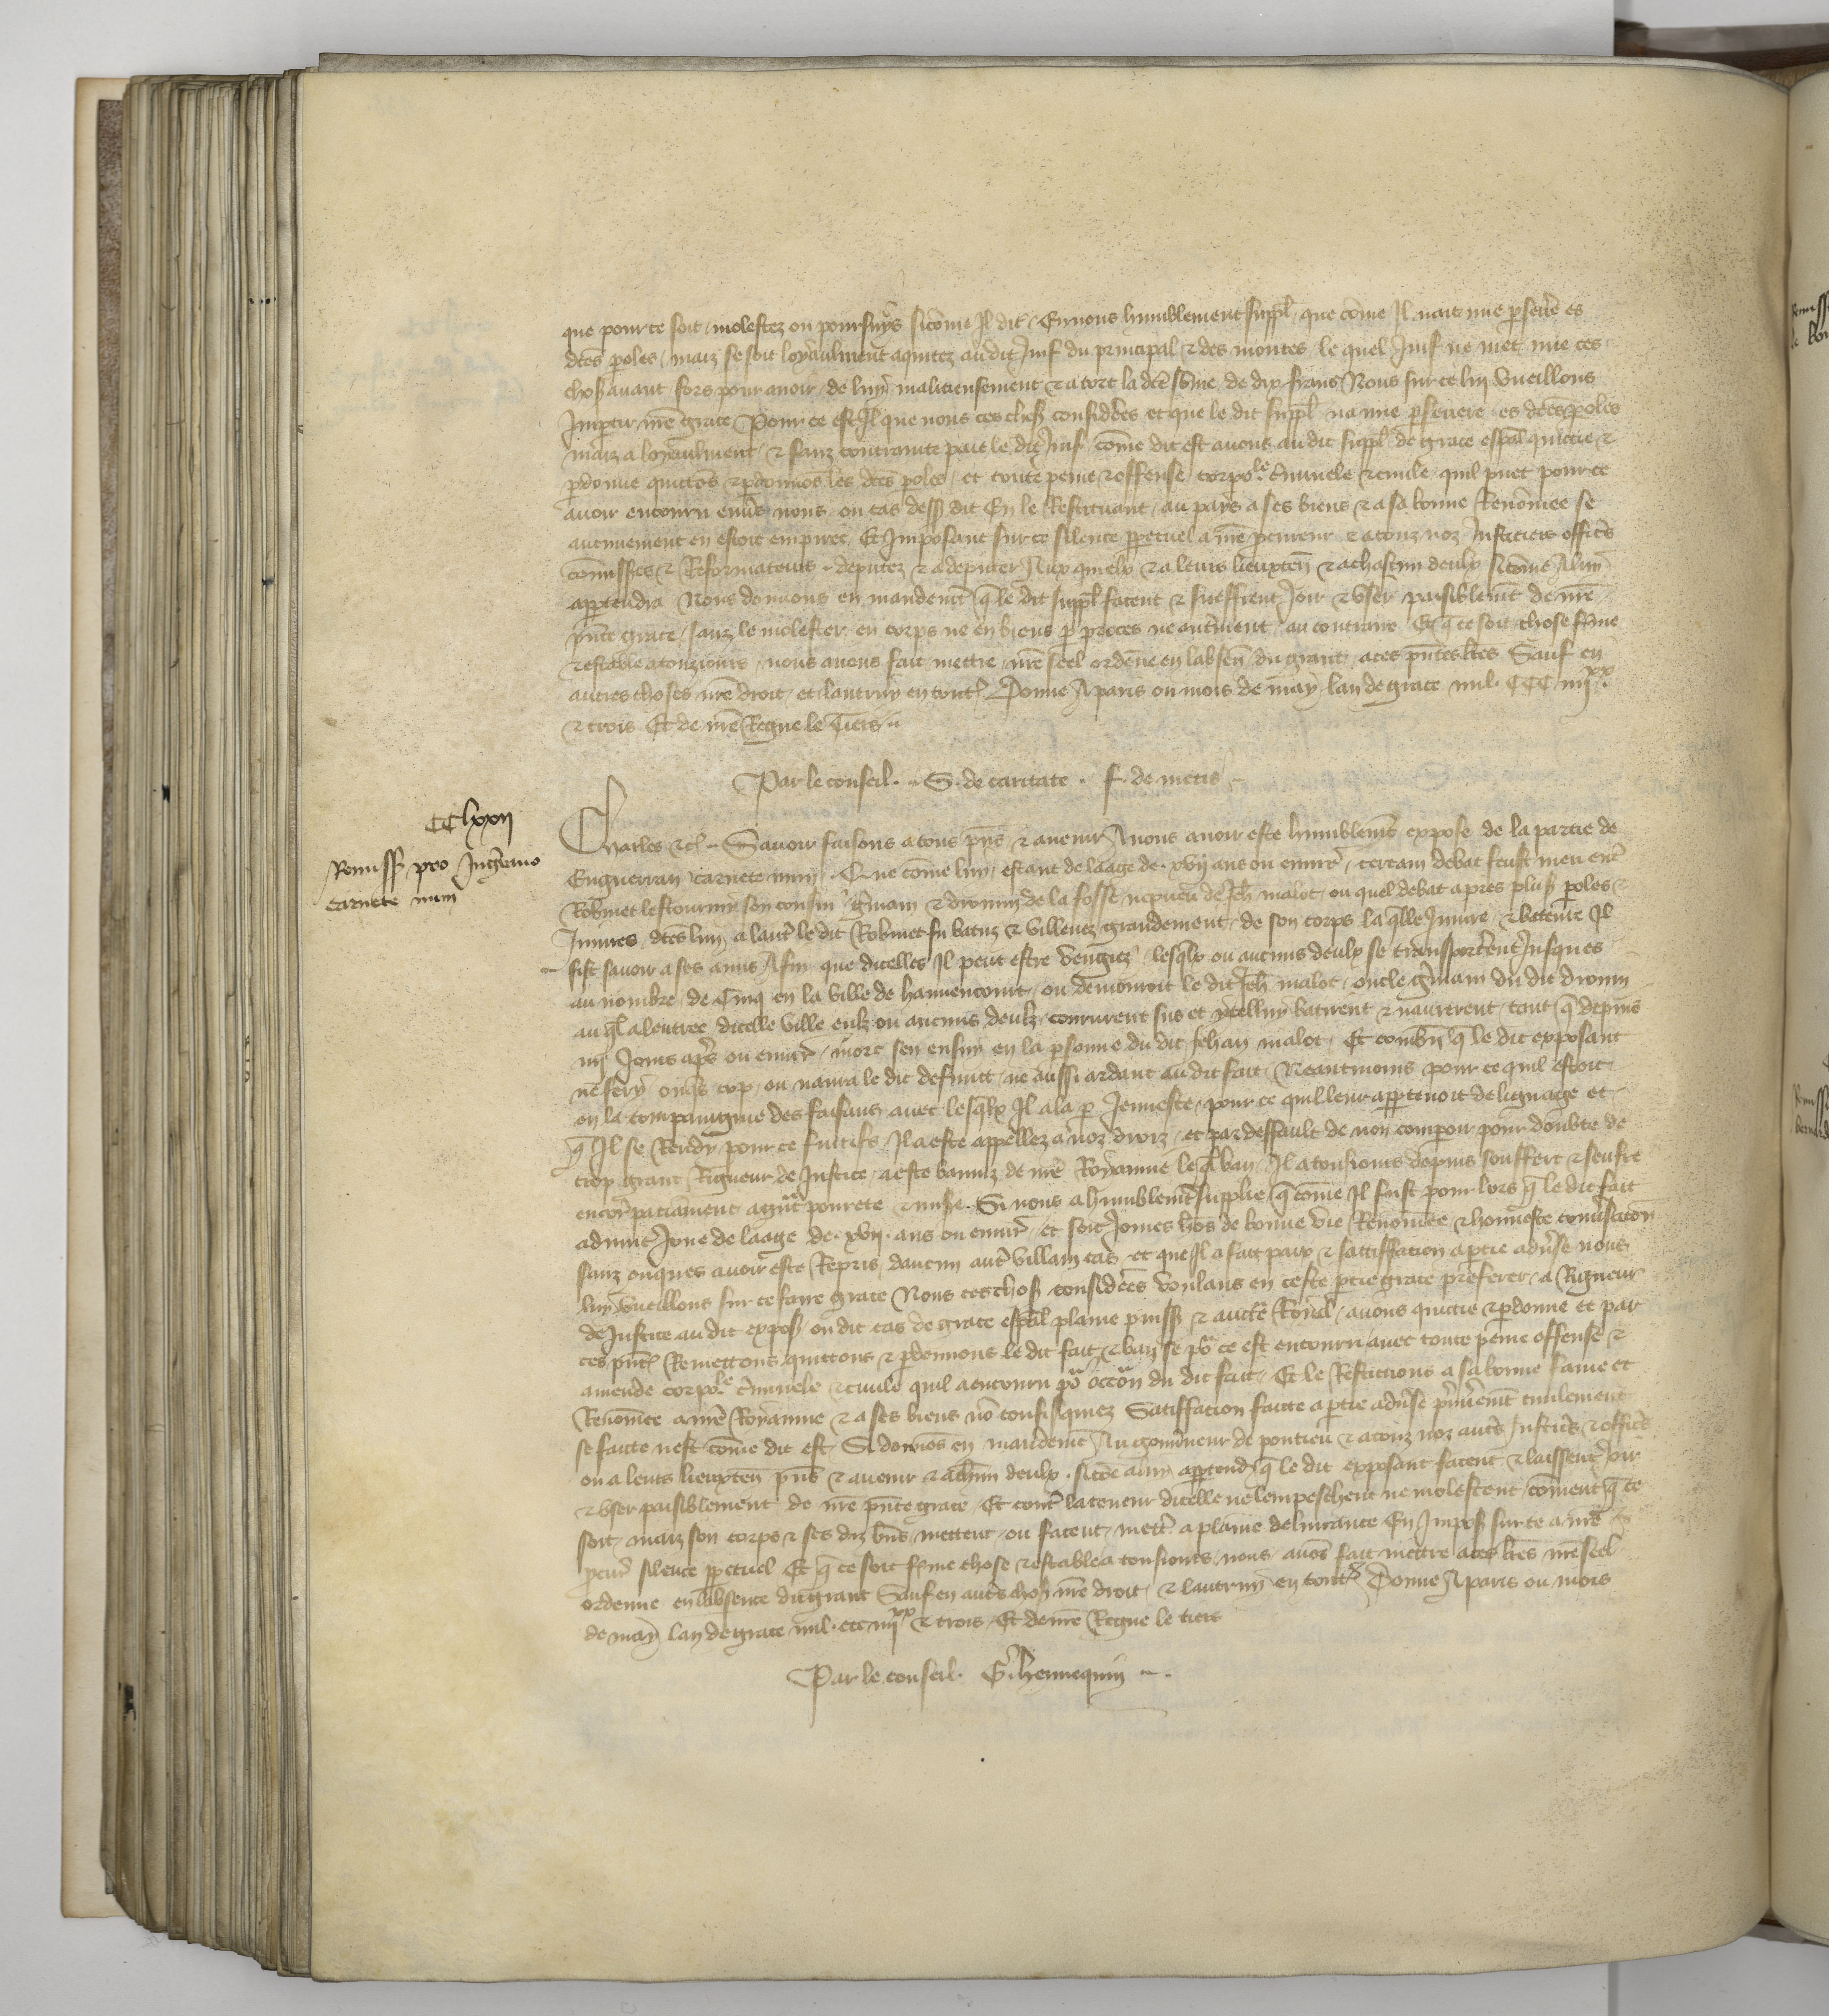 que pour ce soit molestez ou poursuys sicōme Il dit En nous humblement suppl̄ que cōme Il nait mie p̱seuere es
dc̄es p̱oles maiz se soit loyaulment aquitez audit Juif du principal & des montes le quel Juif ne met mie ces
choß auant fors pour auoir de luy malicieusement & a tort la dc̄e sōme de dix frans Nous sur ce lui vueillons
Imp̱tir nr̄e grace Pour ce est Il que nous ces choß considerees et que le dit suppl̄ na mie p̱seuere es dc̄es p̱oles
maiz a loyaulment & sanz contrainte paie le dit Juif cōme dit est auons au dit suppl̄ de grace esp̄al quictie &
p̱donne quictōs & p̱donnōs les dc̄es p̱oles et toute peine & offense corpoͬle cͥminele & ciuile quil puet pour ce
auoir encouru enũs nous ou cas dessß dit En le Restituant au pays a ses biens & a sa bonne Renōmee se
aucunement en estoit empiree Et Imposant sur ce silence p̱petuel a nr̄e procureur & a touz noz Justiciers officꝰs
cōmissꝰes & Reformateurs deputez & a deputer Aux quielx & a leurs lieuxteñ & a chascun deulx sicōme A luy
app̱tendra Nous donnons en mandemēt q̄ le dit suppl̄ facent & sueffrent Joir & vser paisiblemēt de nr̄e
pn̄te grace sanz le molester en corps ne en biens p̱ proces ne autrement au contraire Et q̄ ce soit chose ferme
& estable a touziours nous auons fait mettre nr̄e seel ordene en labseñ du grant a ces pn̄tes lr̄es Sauf en
autres choses nr̄e droit et lautruy en toutꝭ Donne A paris ou mois de may lan de grace mil CCC iiijˣˣ
& trois Et de nr̄e Regne le Tiers
Par le conseil . S. de caritate . f. de metis
CClxxii
Remissß pro Ingeranno
carnete min̄
Charles &cͣ Sauoir faisons a tous pn̄s & auenir A nous auoir este humblemēt expose de la partie de
Enguerran carnete Que cōme luy estant de laage de xvij ans ou enuir̄ certain debat feust meu entꝰ
Robinet lestourmy son cousin gͥmain & dromin de la fosse nepueu de Jeh̄ malot ou quel debat apres plusß p̱oles &
Iniures dc̄es lun a lautꝰ le dit Robinet fu batuz & villenez grandement de son corps la q̄lle Iniure & bateure Il
fist sauoir a ses amis Afin que dicelles Il peut estre vengiez lesqͥlx ou aucuns deulx se transporterent Jusques
au nombre de Cinq en la ville de hauencourt ou demouroit le dit Jeh̄ malot oncle gͥmain du dit dromin
au q̄l a lentree dicelle ville eulz ou aucuns deulz coururent sus et ycelluy batirent & naurerent tant q̄ depuis
iiij Jours apꝰs ou enuir̄ mort sen ensuy en la p̱sonne du dit Jehan malot Et combn̄ q̄ le dit exposant
ne fery onqͥs cop ou naura le dit defunct ne aussi ardant au dit fait Neantmoins pour ce quil estoit
en la compaingnie des faisans auec lesqͥlx Il ala p̱ Jeunesse pour ce quil leur app̱tenoit de lignage et
q̄ Il se Rendy pour ce fuitifs Il a este appellez a noz droiz et par deffault de non comparoir pour doubte de
trop grant Rigueur de Justice a este banniz de nr̄e Royaume le q̄l ban Il a tousiours depuis souffert & seufre
encorꝰ patiāment a grāt pourete & misꝰe. Si nous a humblemēt supplie q̄ cōme Il fust pour lors q̄ le dit fait
aduint Jone de laage de xvij. ans ou enuir̄ et soit Jones hōs de bonne vie Renōmee & honneste conuersacōn
sanz onques auoir este Repris daucun autꝰ villain cas et que Il a fait paix & satiffacion a p̱tie adūse nous
luy vueillons sur ce faire grace Nous ces choß considerees voulans en ceste p̱tie grace preferer a Rigueur
de Justice au dit exposß ou dit cas de grace esp̄al plaine puissß & auctͤ Royal auons quictie & p̱donne et par
ces pn̄tꝭ Remettons quictons & p̱donnons le dit fait & ban se poͬ ce est encouru auec toute peine offense &
amende corpoͬle cͥminele & ciuile quil a encouru poͬ occōn du dit fait Et le Restituons a sa bonne fame et
Renōmee a nr̄e Royaume & a ses biens nō confisquiez Satiffacion faitte a p̱tie adūse pͥmierem̄t ciuilement
se faitte nest cōme dit est Si donnōs en mandemēt Au gouuneur de pontieu & a touz noz autꝰs Justicꝰs & officꝰs
ou a leurs lieuxteñ pn̄s & auenir & a ch̄un deulx sicōe a luy app̱tendͣ q̄ le dit exposant facent & laissent Joir
& vser paisiblement de nr̄e pn̄te grace Et contꝰ la teneur dicelle ne lempeschent ne molestent cōment q̄ ce
soit maiz son corps & ses diz bn̄s mettent ou facent mettꝰ a plaine deliurance En Imposß sur ce a nr̄e
procurꝰ silence p̱petuel Et q̄ ce soit ferme chose & estable a tousiours nous auōs fait mettre a ces lr̄es nr̄e seel
ordenne en labsence du grant Sauf en autꝰs choß nr̄e droit & lautruy en toutꝭ Donne A paris ou mois
de may lan de grace mil ccc iiijˣˣ & trois Et de nr̄e Regne le tiers
Par le conseil. G. hennequin